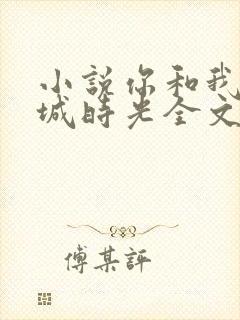 小説你和我
城時光全文
傅某評